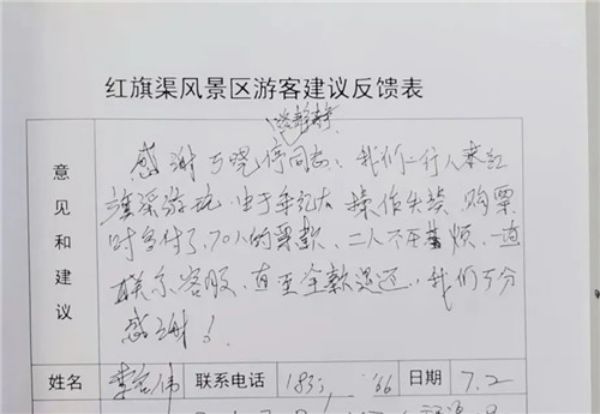 红旗渠风景区游客建议反馈表
意见和建议
感谢 晓停同志：我们一行人来红
旗渠游玩，由于 操作失误 购票
时多付了70人的票款，二人不厌其烦，一直
联系客服，直至全款退还，我们万分
感谢！
姓名 李 伟 联系电话 183 66 日期 7.2